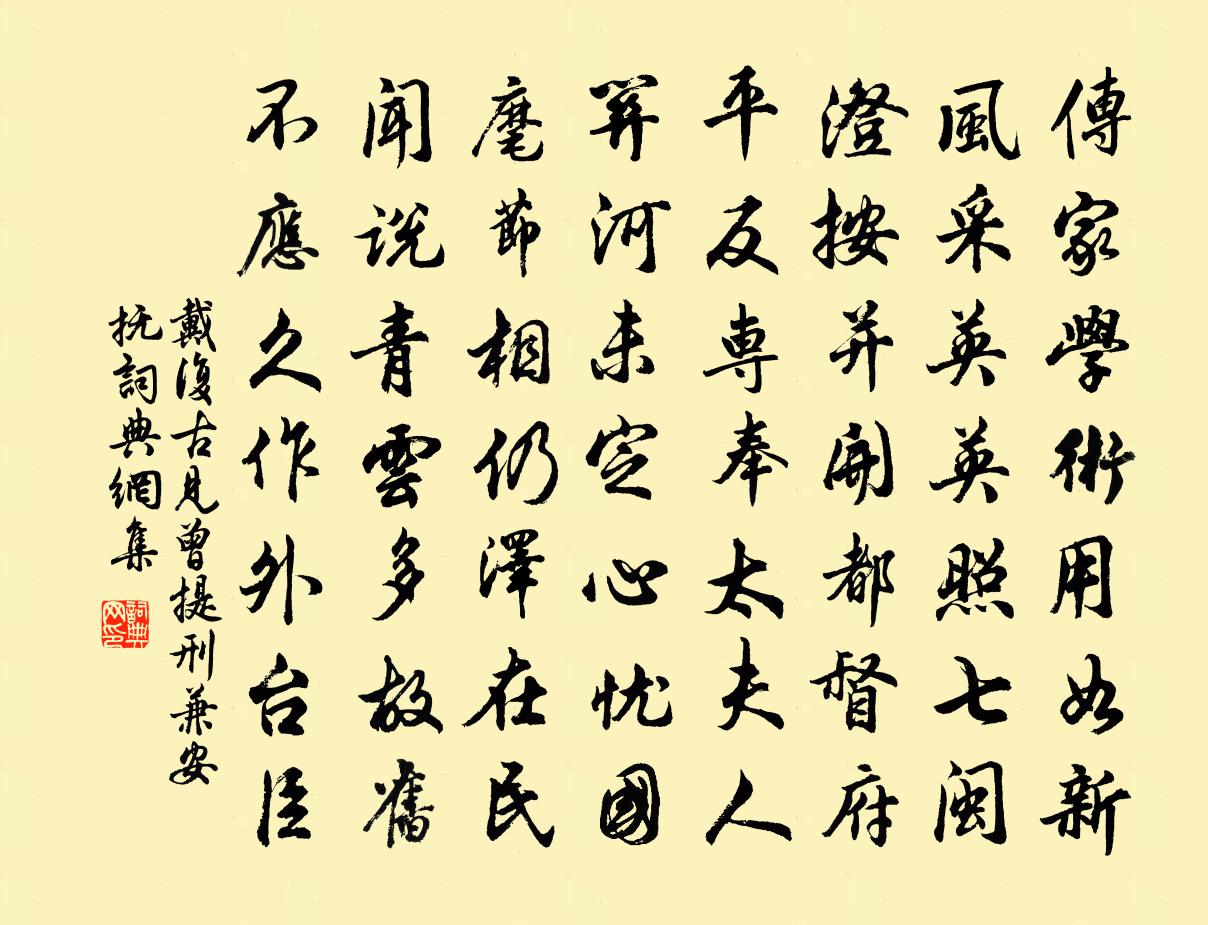 傳家學術用如新
風采英英照七閩
澄按并開都督府
平反専奉太夫人
關河未定心忧國
麾節相仍澤在民
聞說青雲多故舊
不應久作外台臣
戴復古見曾提刑兼安
抚詞典網集
詞典网印